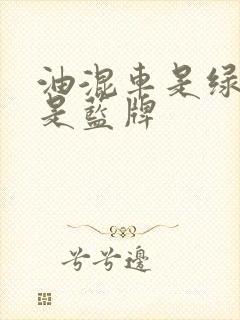 油混車是绿
是藍牌
兮兮邊